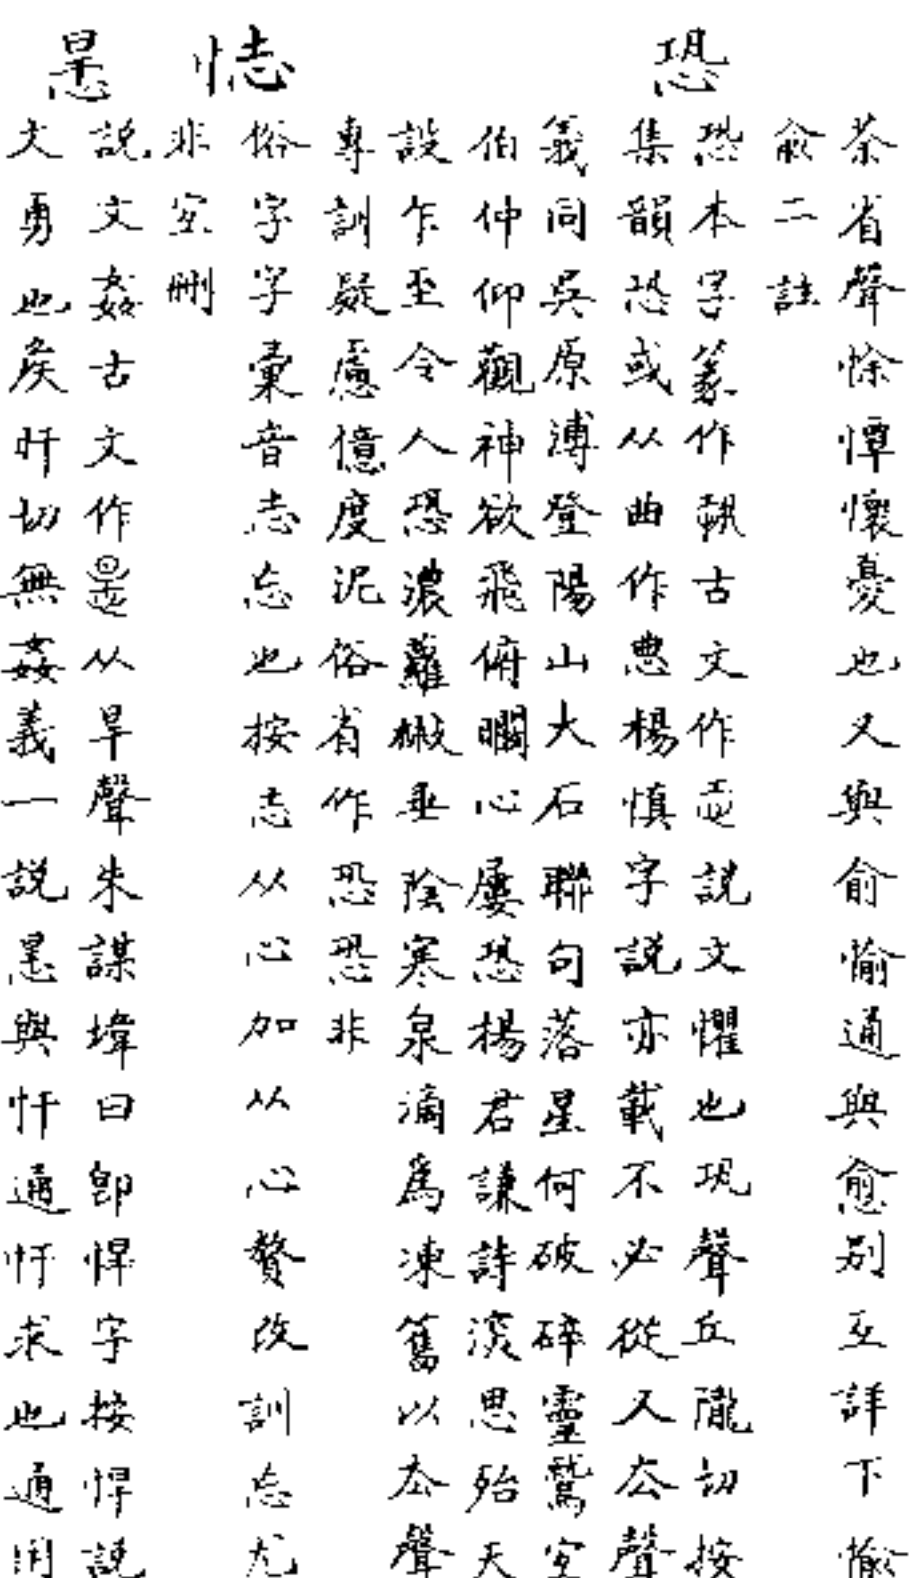 荼省聲悇憛懷憂也又與俞愉通與愈別互詳下愉
俞二註
恐
恐本字篆作𢖶古文作㤨說文懼也巩聲丘隴切按
集韻恐或从曲作㥁楊慎字說亦載不必從又去聲
義同吳原溥登陽山大石聯句落星何破碎靈鷲宐
伯仲仰觀神欲飛俯瞷心屢恐楊君謙詩深思殆天
設乍至令人恐濃蘿樾垂陰寒泉滴爲凍舊以去聲
專訓疑慮億度泥俗省作恐恐非
𢛍
俗字字彙音志忘也按志从心加从心贅改訓忘尤
非宐刪
㥀
說文姦古文作㥀从旱聲朱謀㙔曰卽悍字按悍說
文勇也矦旰切無姦義一說㥀與忓通忓求也通用